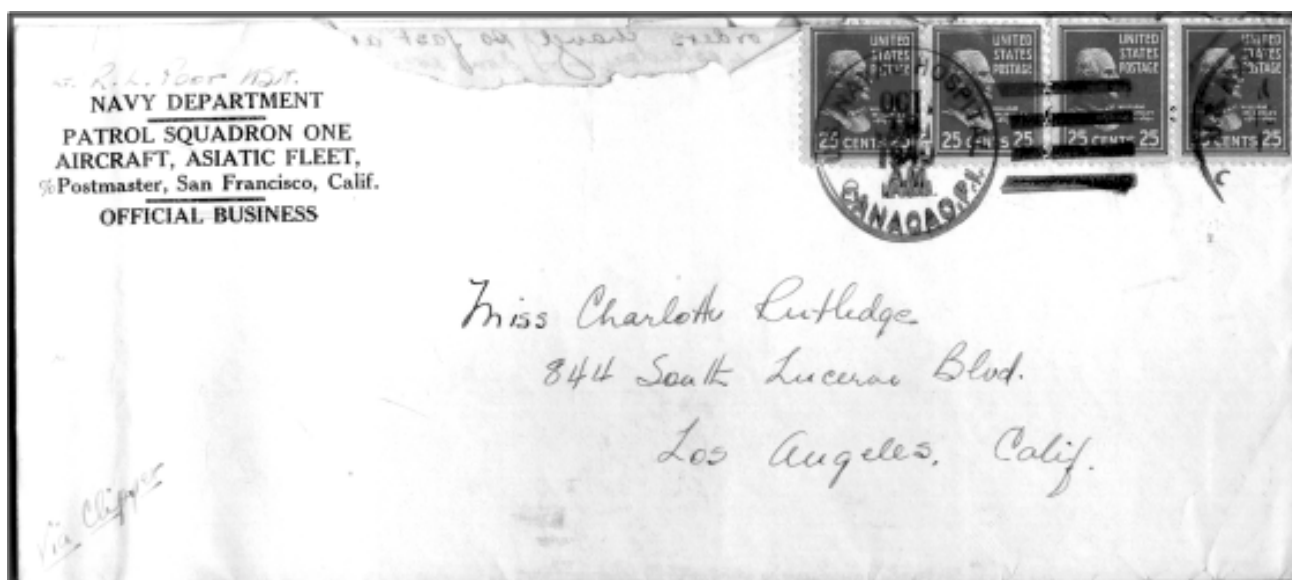 orders travel so fast
R. L.
NAVY DEPARTMENT
PATROL SQUADRON ONE
AIRCRAFT, ASIATIC FLEET,
% Postmaster, San Francisco, Calif.
OFFICIAL BUSINESS
UNITED STATES POSTAGE
25 CENTS 25
UNITED STATES POSTAGE
25 CENTS 25
UNITED STATES POSTAGE
25 CENTS 25
UNITED STATES POSTAGE
25 CENTS 25
NAVAL HOSPITAL
OCT
A.M.
CANACAO, P.I.
Miss Charlotte Rutledge
844 South Lucerne Blvd.
Los Angeles, Calif.
Via Clipper